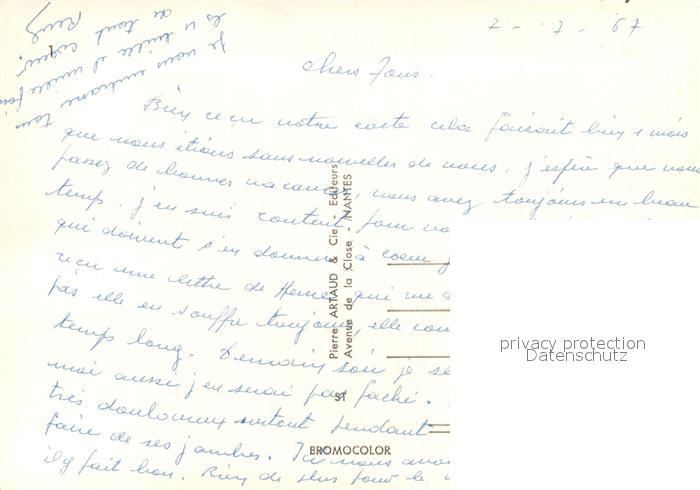 2-7-67
chers Tous.
Bien reçu votre carte cela faisait bien 1 mois
que nous étions sans nouvelles de vous. j'espère que vous
passez de bonnes vacances vous avez toujours eu beau
temps. j'en suis content pour vo
qui doivent s'en donner à coeur j
reçu une lettre de qui me d
pas elle en souffre toujours, elle
temps long. Demain soir je se
moi aussi j'en serai pas fâché.
très douloureux surtout pendant
faire de ses jambes. Ici nous avo
il y fait bon. Rien de plus pour le
je vous embrasse tous
et mille fois
de tout coeur.
Pierre ARTAUD & Cie - Editeurs
Avenue de la Close - NANTES
ST
BROMOCOLOR
privacy protection
Datenschutz